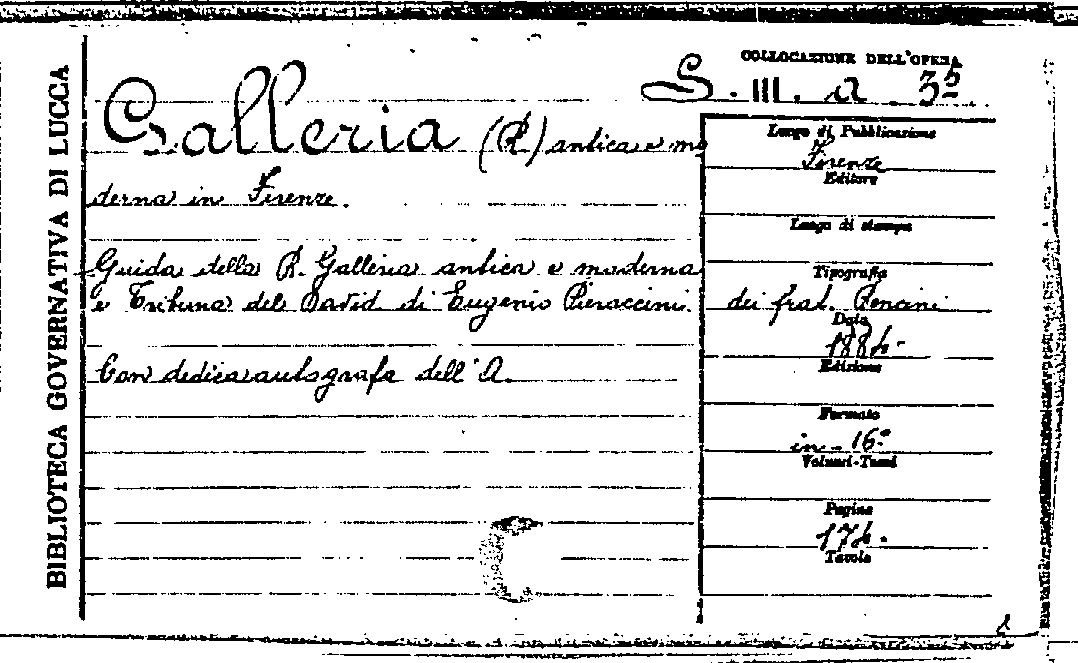 BIBLIOTECA GOVERNATIVA DI LUCCA
COLLOCAZIONE DELL'OPERA
S. III. a 35
Galleria (R.) antica e mo
derna in Firenze.
Guida della R. Galleria antica e moderna
e Tribuna del David di Eugenio Pieraccini.
Con dedica autografa dell'A.
Luogo di Pubblicazione
Firenze
Editore
Luogo di stampa
Tipografia
dei frat. Bencini
Data
1884.
Edizione
Formato
in-16°
Volumi-Tomi
Pagine
174.
Tavole